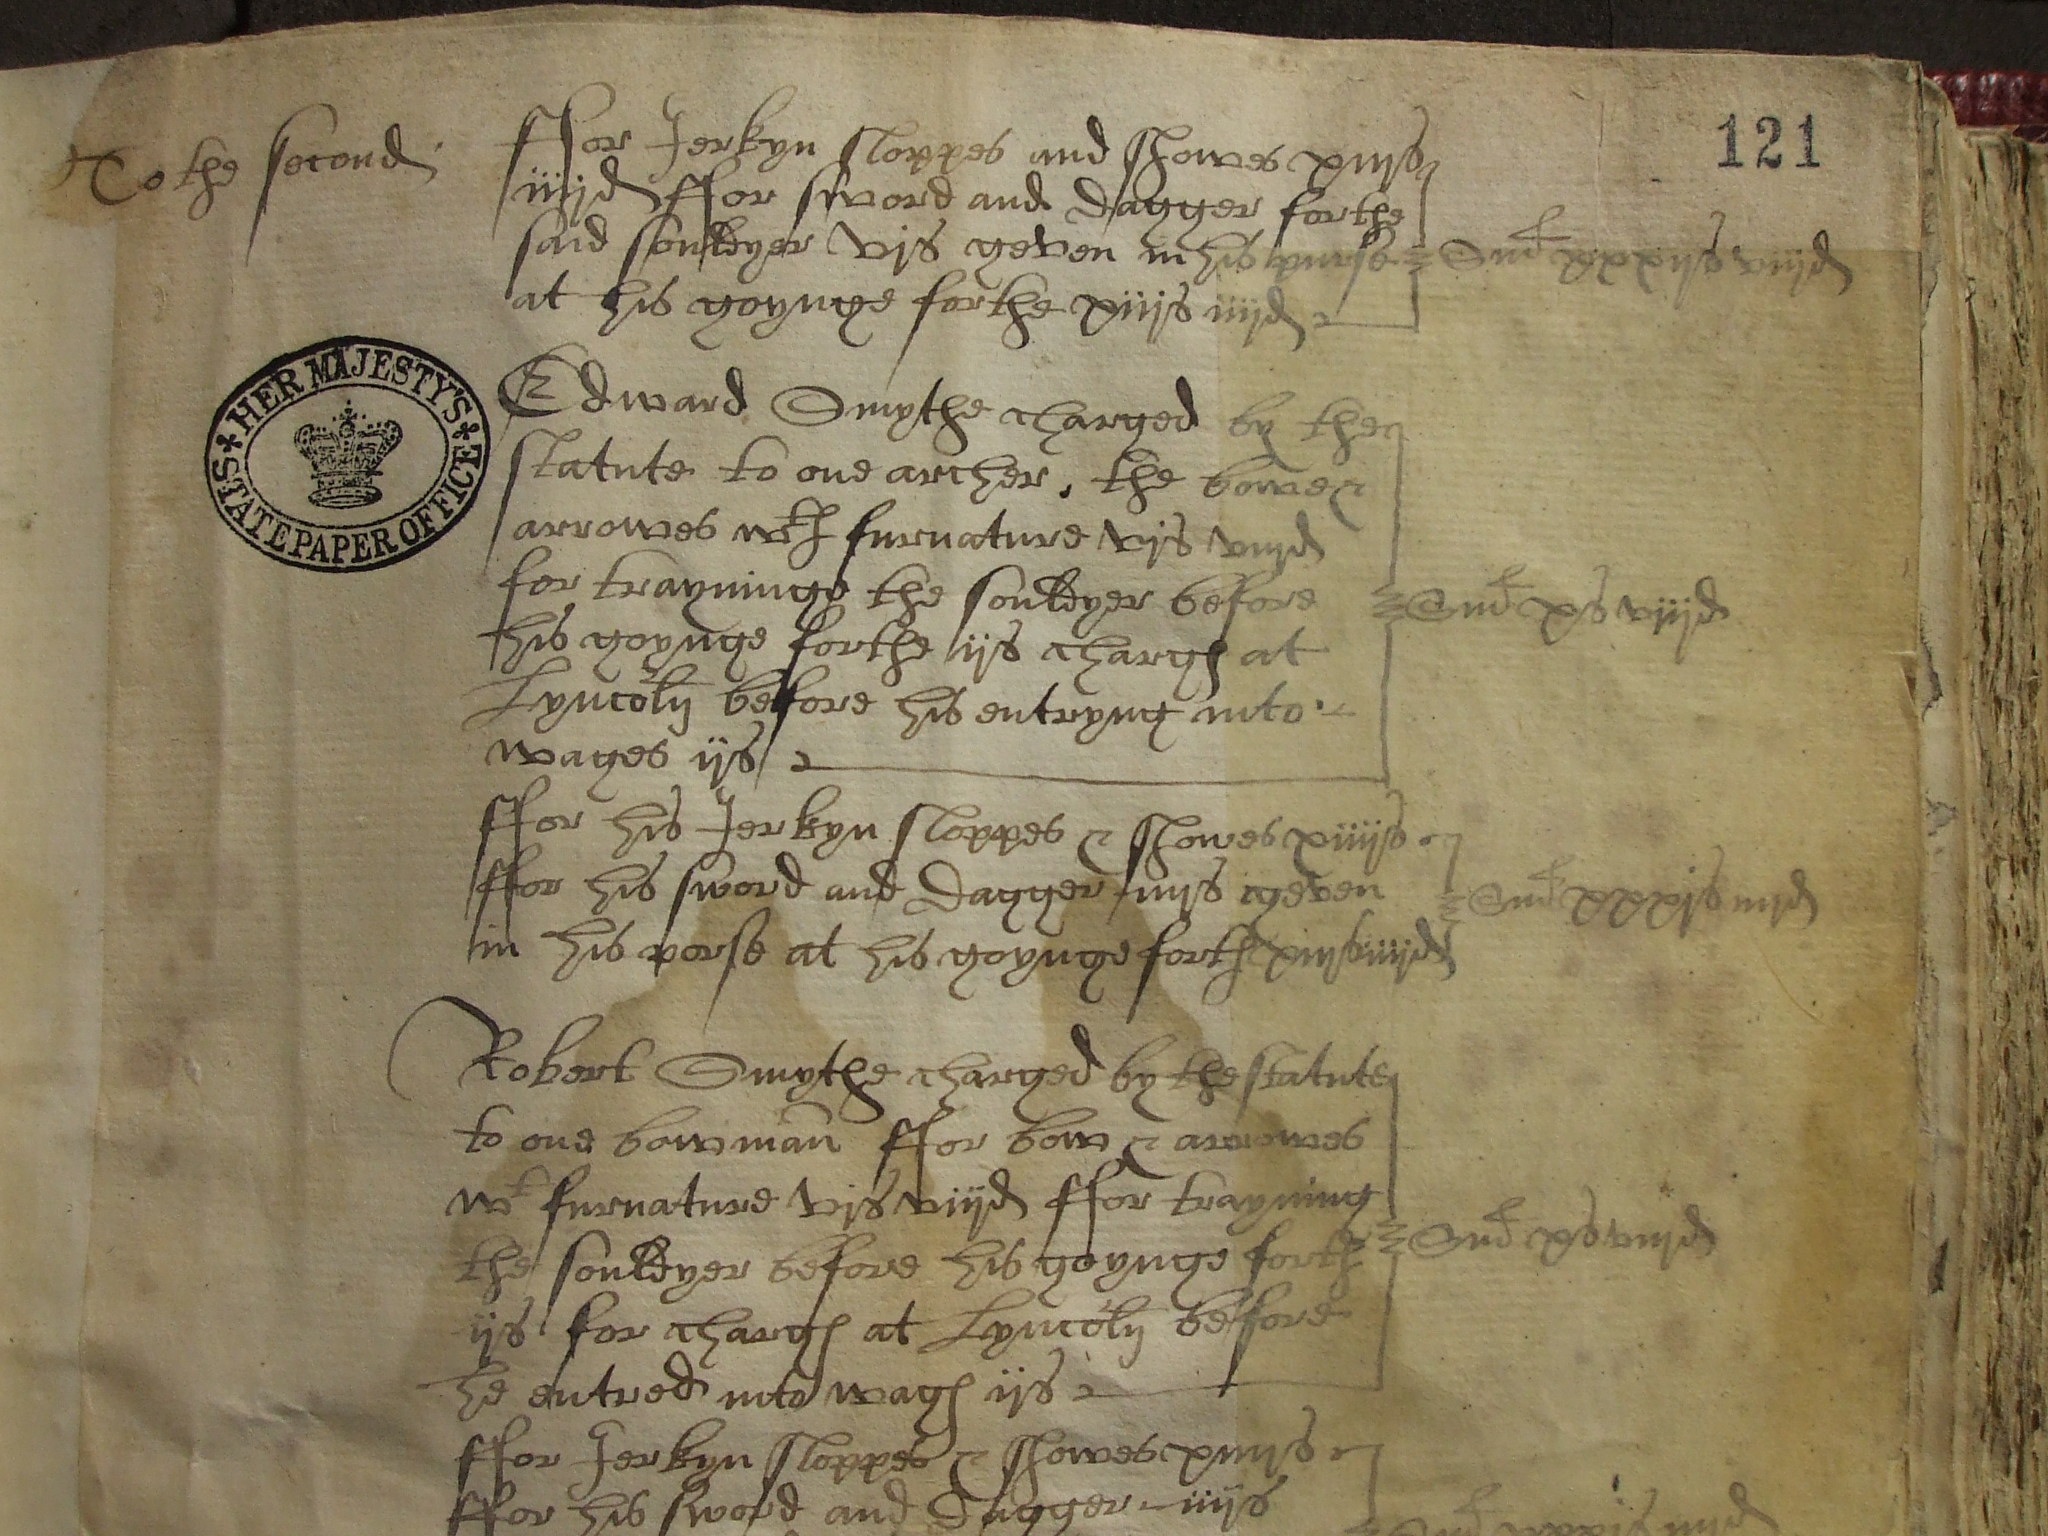 121
To the second
ffor Jerkyn sloppes and shows xiijs
iiijd ffor sword and dagger for the
said souldyer vjs geven in his purse
at his goynge forthe xiijs iiijd
Smª xxxijs viijd
HER MAJESTY'S
STATE PAPER OFFICE
Edward Smythe charged by the
statute to one archer, the bowe &
arrowes wth furnature vjs viijd
for trayninge the souldyer before
his goynge forthe ijs charg at
Lyncoln before his entryng into
wages ijs
Smª xs viijd
ffor his Jerkyn sloppes & showes xiiijs
ffor his sword and dagger iiijs geven
in his porse at his goynge forth xiijs iiijd
Smª xxxjs iiijd
Robert Smythe charged by the statute
to one bowman ffor bow & arrowes
wt furnature vjs viijd ffor trayning
the souldyer before his goynge forth
ijs for charg at Lyncoln before
he entred into wag ijs
Smª xs viijd
ffor Jerkyn sloppes & showes xiiijs
ffor his sword and dagger iiijs